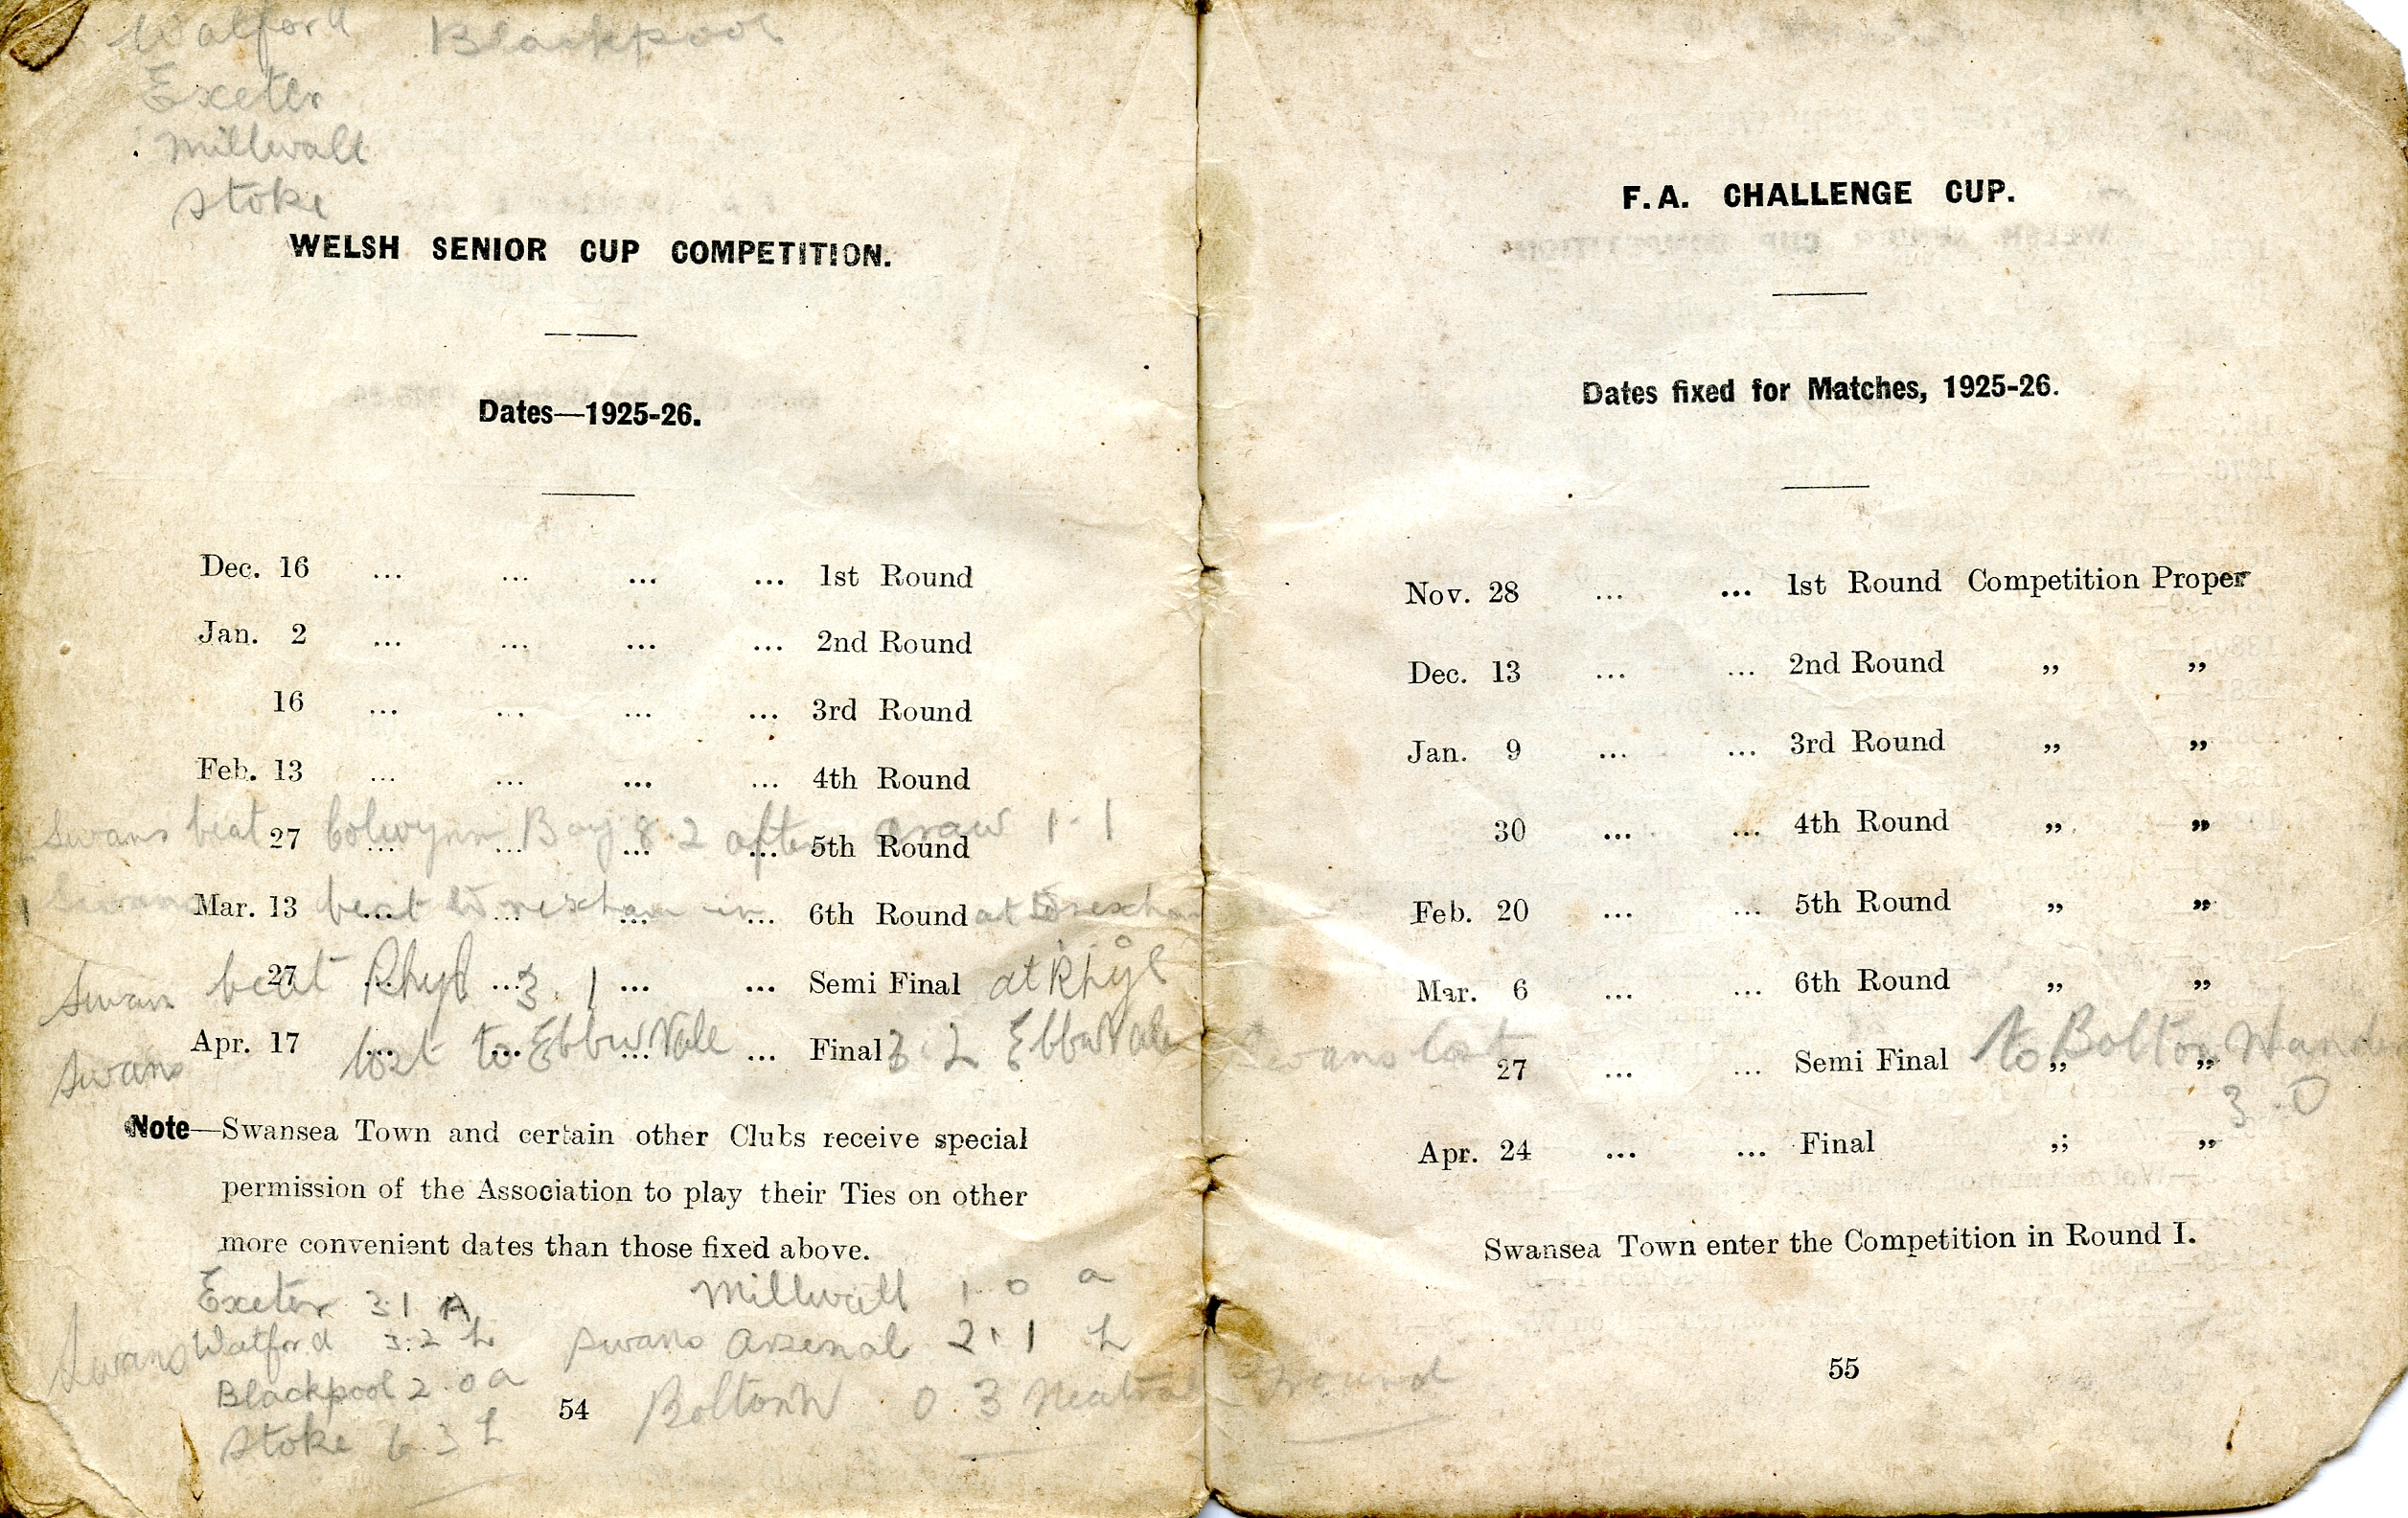 Watford Blackpool
Exeter
Millwall
Stoke
WELSH SENIOR CUP COMPETITION.
Dates—1925-26.
Dec. 16 ... ... ... ... 1st Round
Jan. 2 ... ... ... ... 2nd Round
16 ... ... ... ... 3rd Round
Feb. 13 ... ... ... ... 4th Round
Swans beat Colwynn Bay 8 2 after draw 1-1
27 ... ... ... ... 5th Round
Swans beat Wrexham in at Wrexham
Mar. 13 ... ... ... ... 6th Round
Swan beat Rhyl 3.1 at Rhyl
27 ... ... ... ... Semi Final
Swans lost to Ebbw Vale 3.2 Ebbw Vale
Apr. 17 ... ... ... ... Final
Note—Swansea Town and certain other Clubs receive special
permission of the Association to play their Ties on other
more convenient dates than those fixed above.
Exeter 3.1 A Millwall 1-0 a
Swans Watford 3.2 h Swans Arsenal 2.1 h
Blackpool 2.0 a Bolton W 0 3 Neutral Ground
Stoke 6.3 h
54
F.A. CHALLENGE CUP.
Dates fixed for Matches, 1925-26.
Nov. 28 ... ... 1st Round Competition Proper
Dec. 13 ... ... 2nd Round ,, ,,
Jan. 9 ... ... 3rd Round ,, ,,
30 ... ... 4th Round ,, ,,
Feb. 20 ... ... 5th Round ,, ,,
Mar. 6 ... ... 6th Round ,, ,,
Swans lost to Bolton Wand
27 ... ... Semi Final ,, ,,
3-0
Apr. 24 ... ... Final ,; ,,
Swansea Town enter the Competition in Round I.
55